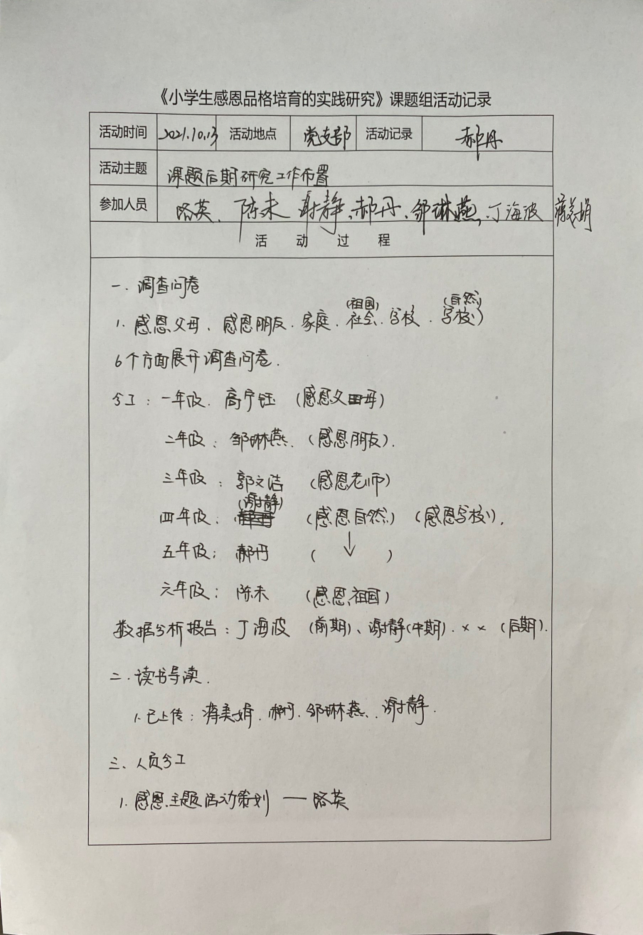 《小学生感恩品格培育的实践研究》课题组活动记录
活动时间 2021.10.13 活动地点 党支部 活动记录 郝丹
活动主题 课题后期研究工作布置
参加人员 路英、陈未、谢静、郝丹、邹琳燕、丁海波
活 动 过 程
一、调查问卷
(祖国) (自然)
1. 感恩父母、感恩朋友、家庭、社会、学校、学校)
6个方面展开调查问卷.
分工：一年级、高宁钰 (感恩父母)
二年级：邹琳燕、(感恩朋友).
三年级：郭文洁 (感恩老师)
(谢静)
四年级、 (感恩自然) (感恩学校),
五年级：郝丹 ( ↓ )
六年级：陈未 (感恩祖国)
数据分析报告：丁海波 (前期)、谢静(中期)、×× (后期).
二、读书导读.
1. 已上传：郝丹、邹琳燕、谢静.
三、人员分工
1. 感恩主题活动策划 —— 路英